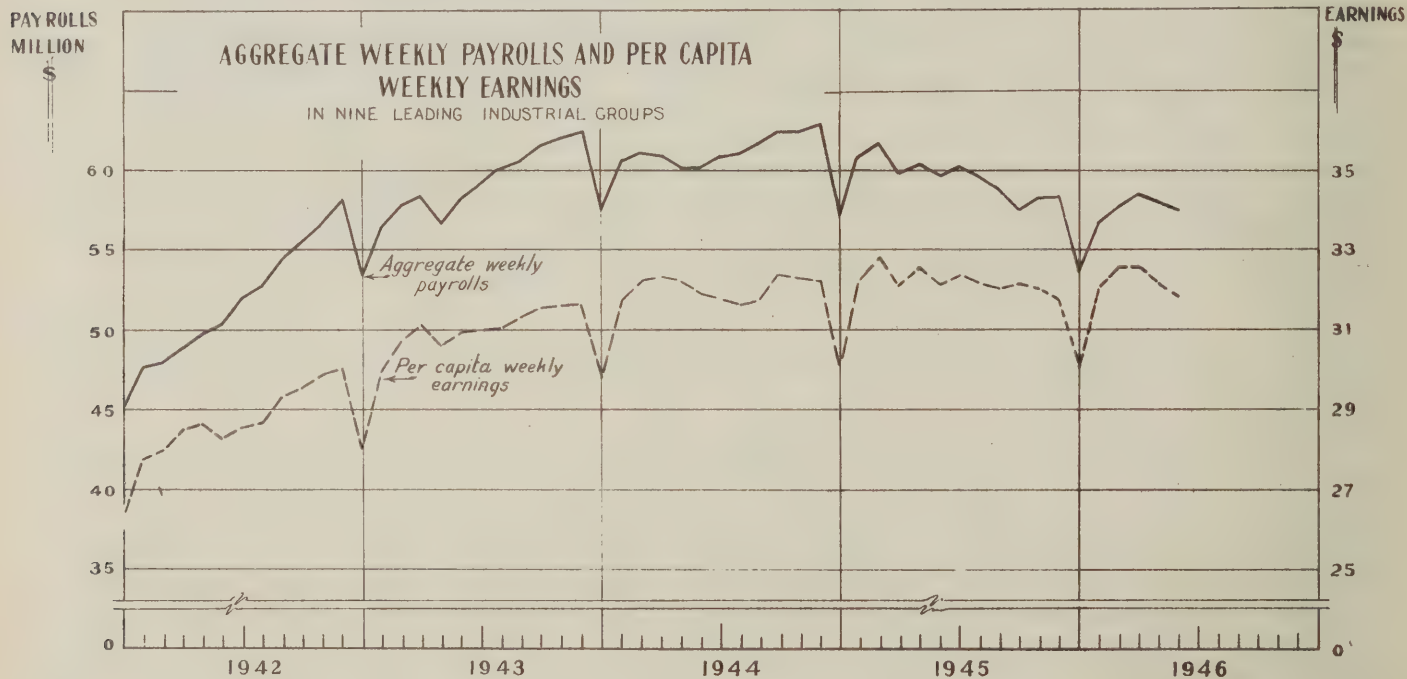 PAYROLLS
MILLION
$
EARNINGS
$
AGGREGATE WEEKLY PAYROLLS AND PER CAPITA
WEEKLY EARNINGS
IN NINE LEADING INDUSTRIAL GROUPS
60
35
55
33
Aggregate weekly
payrolls
50
31
Per capita weekly
earnings
45
29
40
27
35
25
0
0
1942
1943
1944
1945
1946